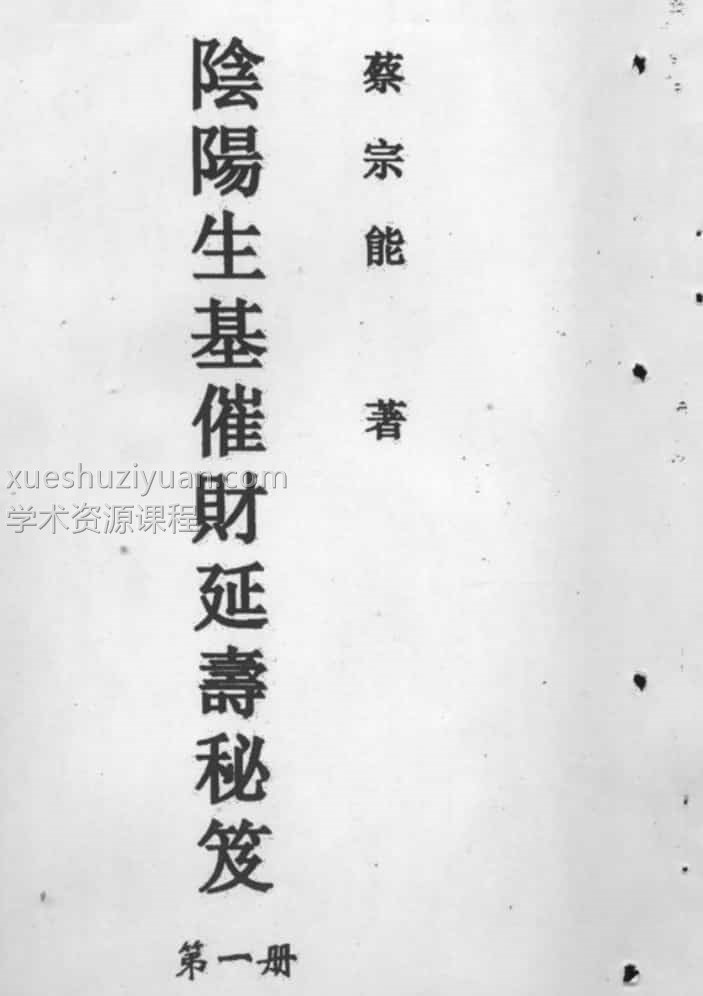 蔡宗能 著
陰陽生基催財延壽秘笈
第一册
xueshuziyuan.com
学术资源课程